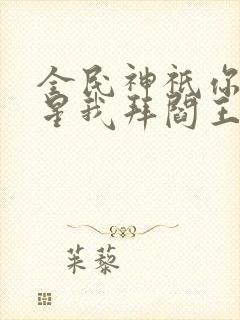 全民神祇你
星我拜阎王
茱藜